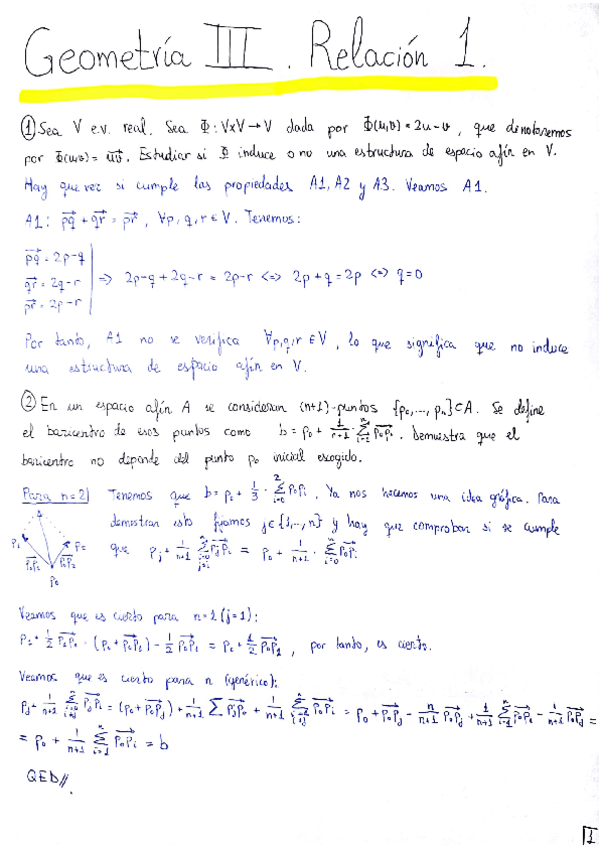 Geometría III. Relación 1.
① Sea V e.v. real. Sea Φ: V×V → V dada por Φ(u,v) = 2u - v, que denotaremos
por Φ(u,v) = \overrightarrow{uv}. Estudiar si Φ induce o no una estructura de espacio afín en V.
Hay que ver si cumple las propiedades A1, A2 y A3. Veamos A1.
A1: \overrightarrow{pq} + \overrightarrow{qr} = \overrightarrow{pr}, ∀p,q,r ∈ V. Tenemos:
\overrightarrow{pq} = 2p-q
\overrightarrow{qr} = 2q-r
\overrightarrow{pr} = 2p-r
=> 2p-q + 2q-r = 2p-r <=> 2p+q = 2p <=> q=0
Por tanto, A1 no se verifica ∀p,q,r ∈ V, lo que significa que no induce
una estructura de espacio afín en V.
② En un espacio afín A se consideran (n+1)-puntos {p₀,..., pₙ} ⊂ A. Se define
el baricentro de esos puntos como b = p₀ + \frac{1}{n+1} · \sum_{i=1}^{n} \overrightarrow{p₀pᵢ}. Demuestra que el
baricentro no depende del punto p₀ inicial escogido.
Para n=2 | Tenemos que b = p₀ + \frac{1}{3} · \sum_{i=0}^{2} \overrightarrow{p₀pᵢ}. Ya nos hacemos una idea gráfica. Para
demostrar esto fijamos j ∈ {1,..,n} y hay que comprobar si se cumple
que pⱼ + \frac{1}{n+1} \sum \overrightarrow{pⱼpᵢ} = p₀ + \frac{1}{n+1} · \sum_{i=0}^{n} \overrightarrow{p₀pᵢ}
p₀
Veamos que es cierto para n=1 (j=1):
p₁ + \frac{1}{2} \overrightarrow{p₁p₀} = (p₀ + \overrightarrow{p₀p₁}) - \frac{1}{2} \overrightarrow{p₀p₁} = p₀ + \frac{1}{2} \overrightarrow{p₀p₁}, por tanto, es cierto.
Veamos que es cierto para n (genérico):
pⱼ + \frac{1}{n+1} \sum \overrightarrow{pⱼpᵢ} = (p₀ + \overrightarrow{p₀pⱼ}) + \frac{1}{n+1} \sum \overrightarrow{pⱼp₀} + \frac{1}{n+1} \sum \overrightarrow{p₀pᵢ} = p₀ + \overrightarrow{p₀pⱼ} - \frac{n}{n+1} \overrightarrow{p₀pⱼ} + \frac{1}{n+1} \sum \overrightarrow{p₀pᵢ} - \frac{1}{n+1} \overrightarrow{p₀pⱼ} =
= p₀ + \frac{1}{n+1} \sum_{i=1}^{n} \overrightarrow{p₀pᵢ} = b
QED//.
1